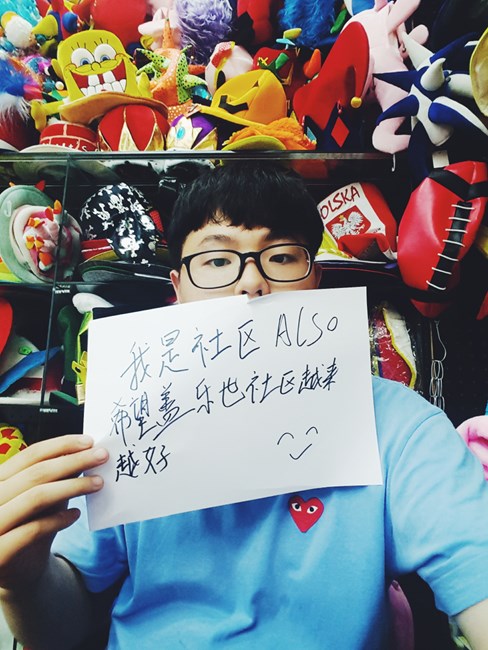 POLSKA
我是社区 Also
希望盖乐世社区越来
越好